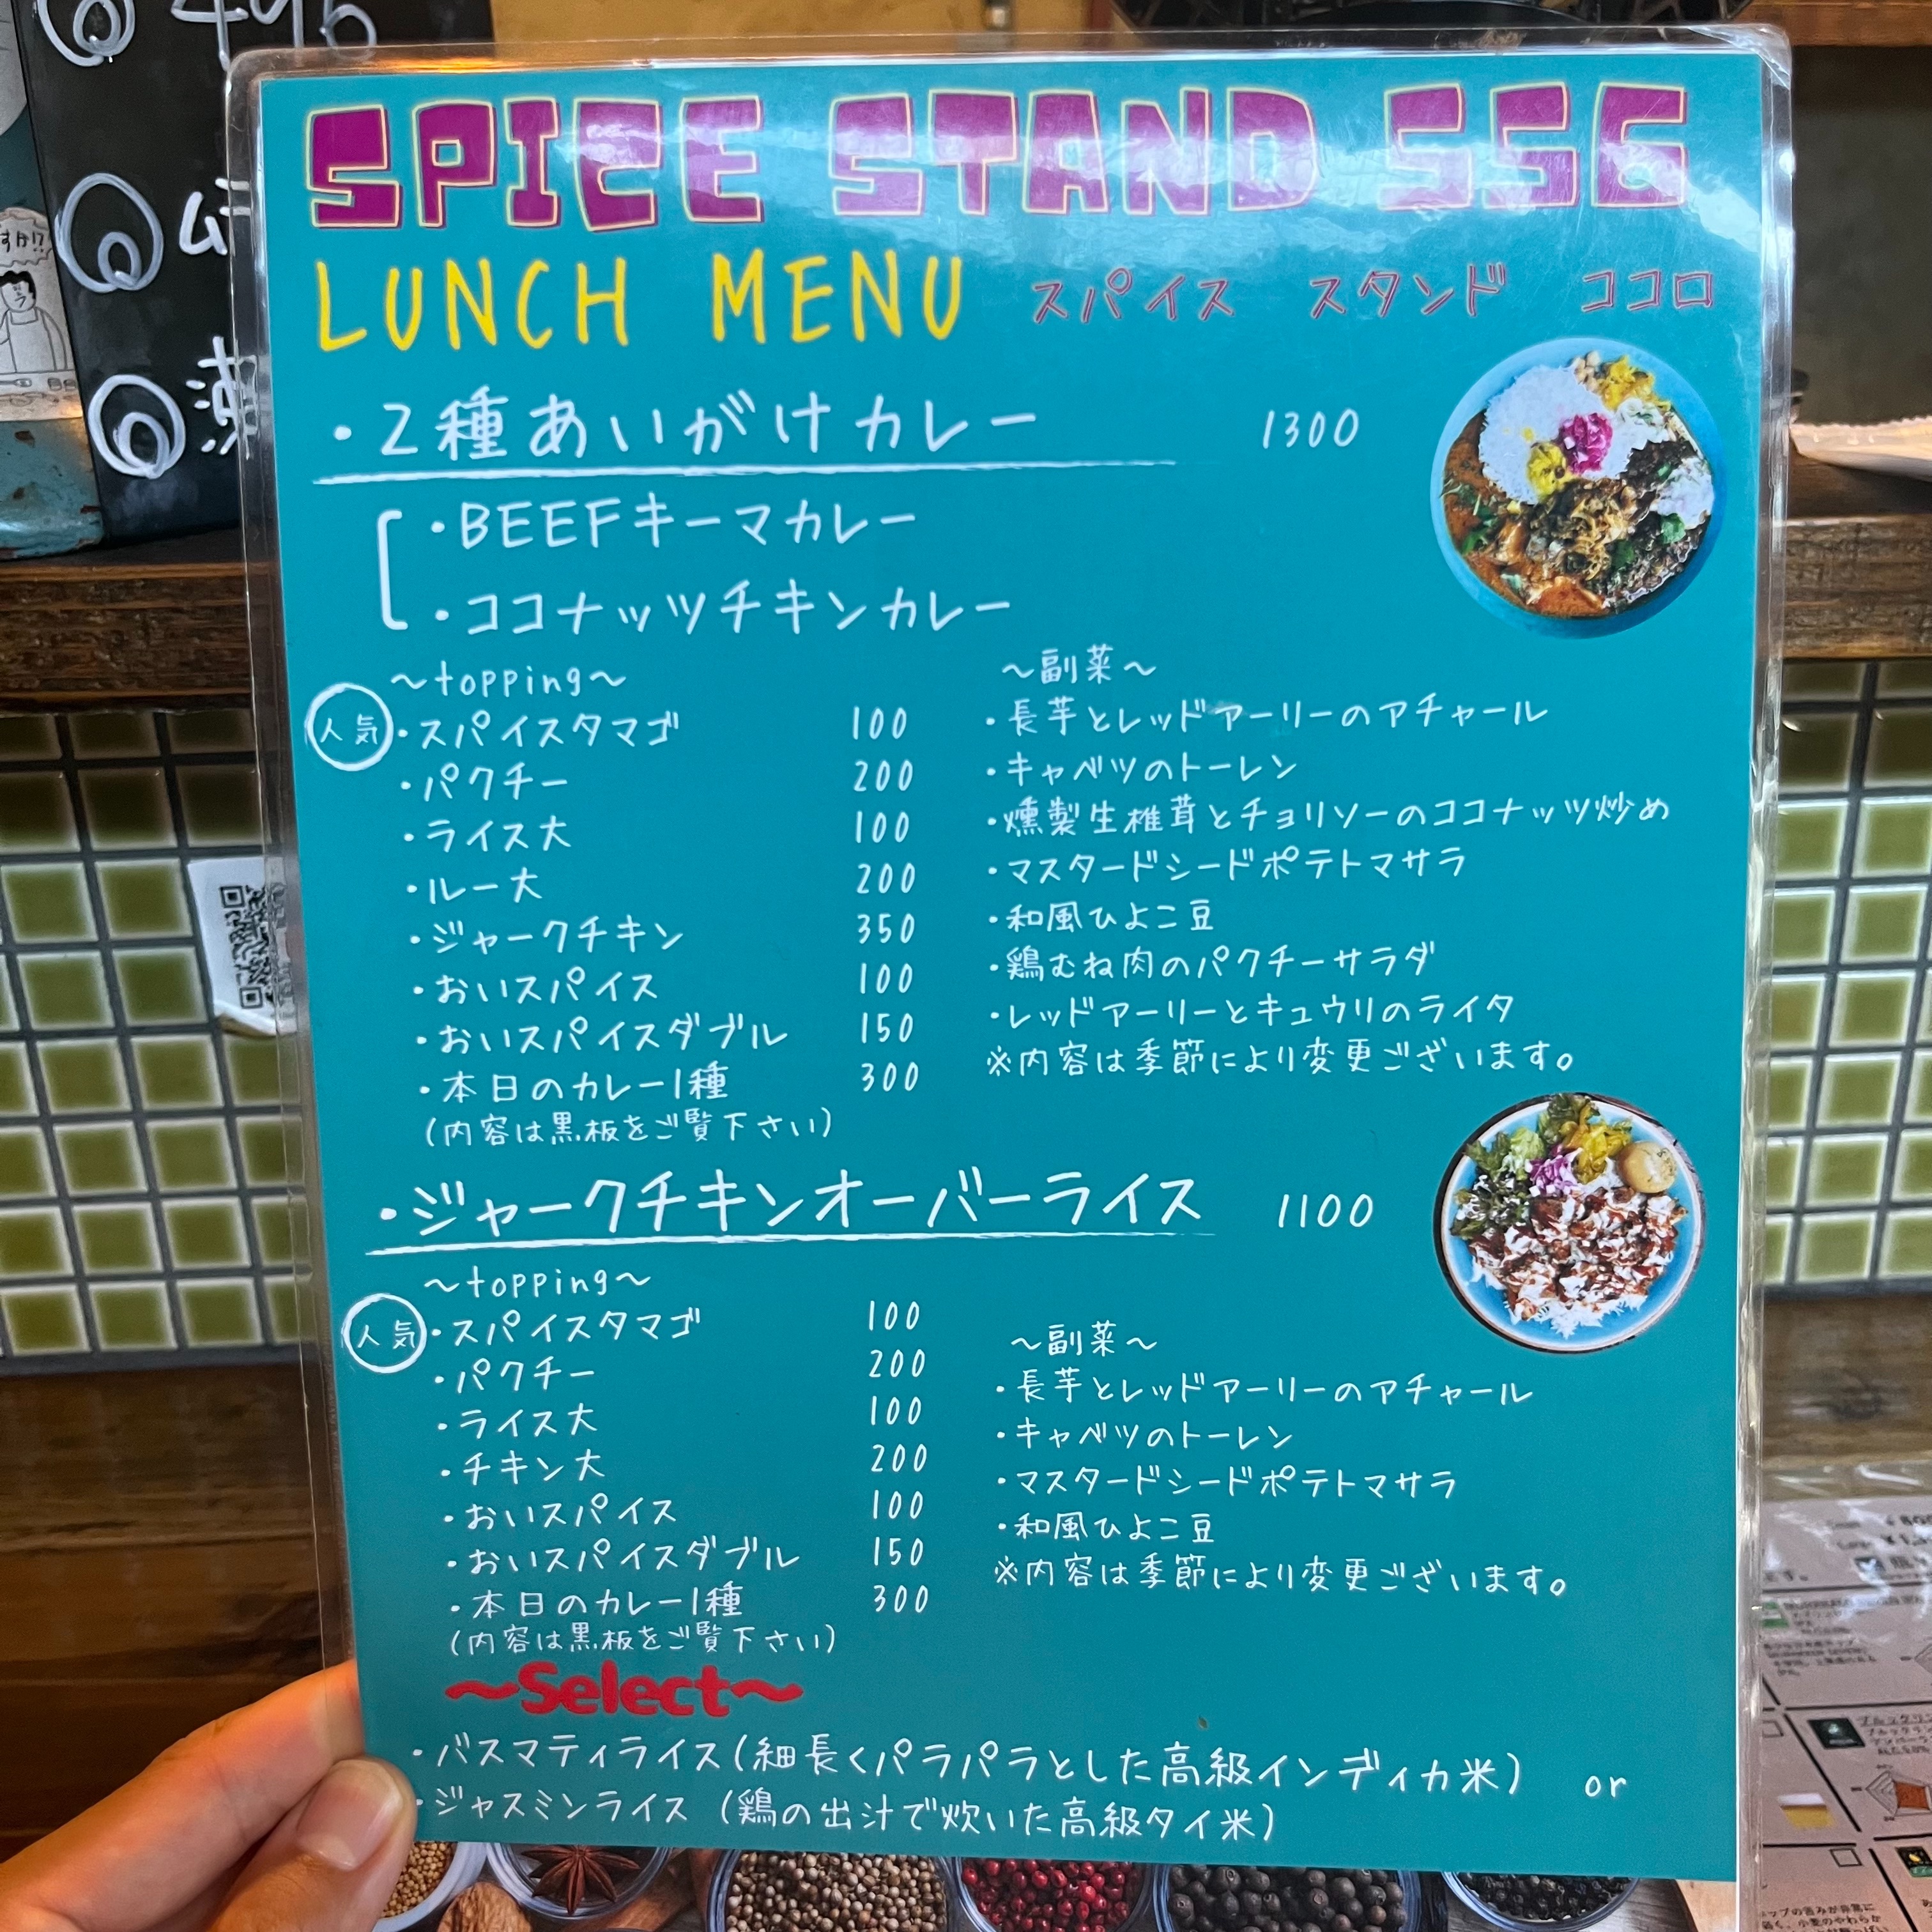 SPICE STAND 556
LUNCH MENU スパイス スタンド ココロ
・2種あいがけカレー 1300
・BEEFキーマカレー
・ココナッツチキンカレー
～topping～
人気 ・スパイスタマゴ 100
・パクチー 200
・ライス大 100
・ルー大 200
・ジャークチキン 350
・おいスパイス 100
・おいスパイスダブル 150
・本日のカレー1種 300
(内容は黒板をご覧下さい)
～副菜～
・長芋とレッドアーリーのアチャール
・キャベツのトーレン
・燻製生椎茸とチョリソーのココナッツ炒め
・マスタードシードポテトマサラ
・和風ひよこ豆
・鶏むね肉のパクチーサラダ
・レッドアーリーとキュウリのライタ
※内容は季節により変更ございます。
・ジャークチキンオーバーライス 1100
～topping～
人気 ・スパイスタマゴ 100
・パクチー 200
・ライス大 100
・チキン大 200
・おいスパイス 100
・おいスパイスダブル 150
・本日のカレー1種 300
(内容は黒板をご覧下さい)
～副菜～
・長芋とレッドアーリーのアチャール
・キャベツのトーレン
・マスタードシードポテトマサラ
・和風ひよこ豆
※内容は季節により変更ございます。
～Select～
・バスマティライス(細長くパラパラとした高級インディカ米) or
・ジャスミンライス (鶏の出汁で炊いた高級タイ米)